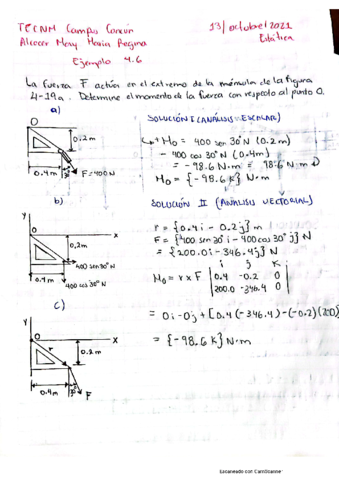 TECNM Campus Cancún
13/octubre/2021
Alcocer May Maria Regina
Estática
Ejemplo 4.6
La fuerza F actúa en el extremo de la ménsula de la figura
4-19a. Determine el momento de la fuerza con respecto al punto O.
a)
Y
O
0.2m
0.4m
30°
F=400N
SOLUCIÓN I (ANÁLISIS ESCALAR)
↶+Mo = 400 sen 30° N (0.2m)
- 400 cos 30° N (0.4m)
= -98.6 N·m = 98.6 N·m ↻
Mo = {-98.6 K} N·m
b)
Y
O
X
0,2m
400 sen 30° N
0.4m
400 cos 30° N
SOLUCIÓN II (ANÁLISIS VECTORIAL)
r = {0.4i - 0.2j} m
F = {400 sen 30° i - 400 cos 30° j} N
= {200.0i - 346.4j} N
i j K
Mo = r x F | 0.4 -0.2 0 |
| 200.0 -346.4 0 |
= 0i - 0j + [0.4(-346.4) - (-0.2)(200)]
= {-98.6 K} N·m
c)
Y
O
X
r
0.2m
0.4m
F
Escaneado con CamScanner